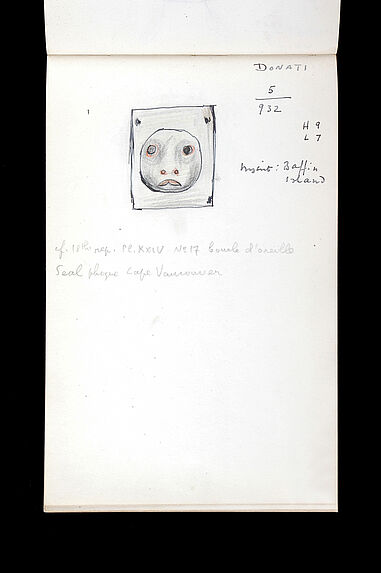 DONATI
5
932
1
H 9
L 7
Baffin
Island
cf. 18th rep. Pl. XXIV No 17 boucle d'oreille
Seal phoque Cape Vancouver